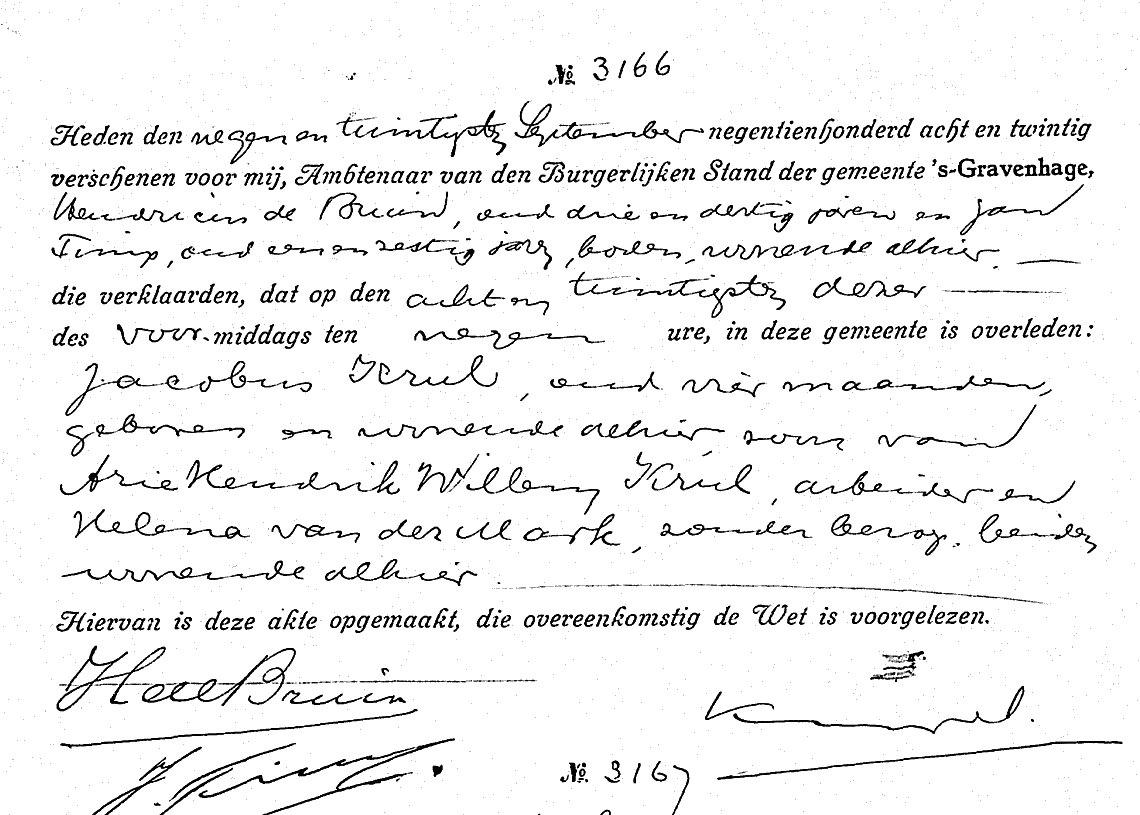 № 3166
Heden den negen en twintigsten September negentienhonderd acht en twintig
verschenen voor mij, Ambtenaar van den Burgerlijken Stand der gemeente 's-Gravenhage,
Hendricus de Bruin, oud drie en dertig jaren en Jan
Timp, oud een en zestig jaren, boden, wonende alhier.
die verklaarden, dat op den acht en twintigsten dezer
des Voor-middags ten negen ure, in deze gemeente is overleden:
Jacobus Krul, oud vier maanden,
geboren en wonende alhier, zoon van
Arie Hendrik Willem Krul, arbeider en
Helena van der Mark, zonder beroep, beiden
wonende alhier.
Hiervan is deze akte opgemaakt, die overeenkomstig de Wet is voorgelezen.
HdeBruin
J. Timp.
№ 3167